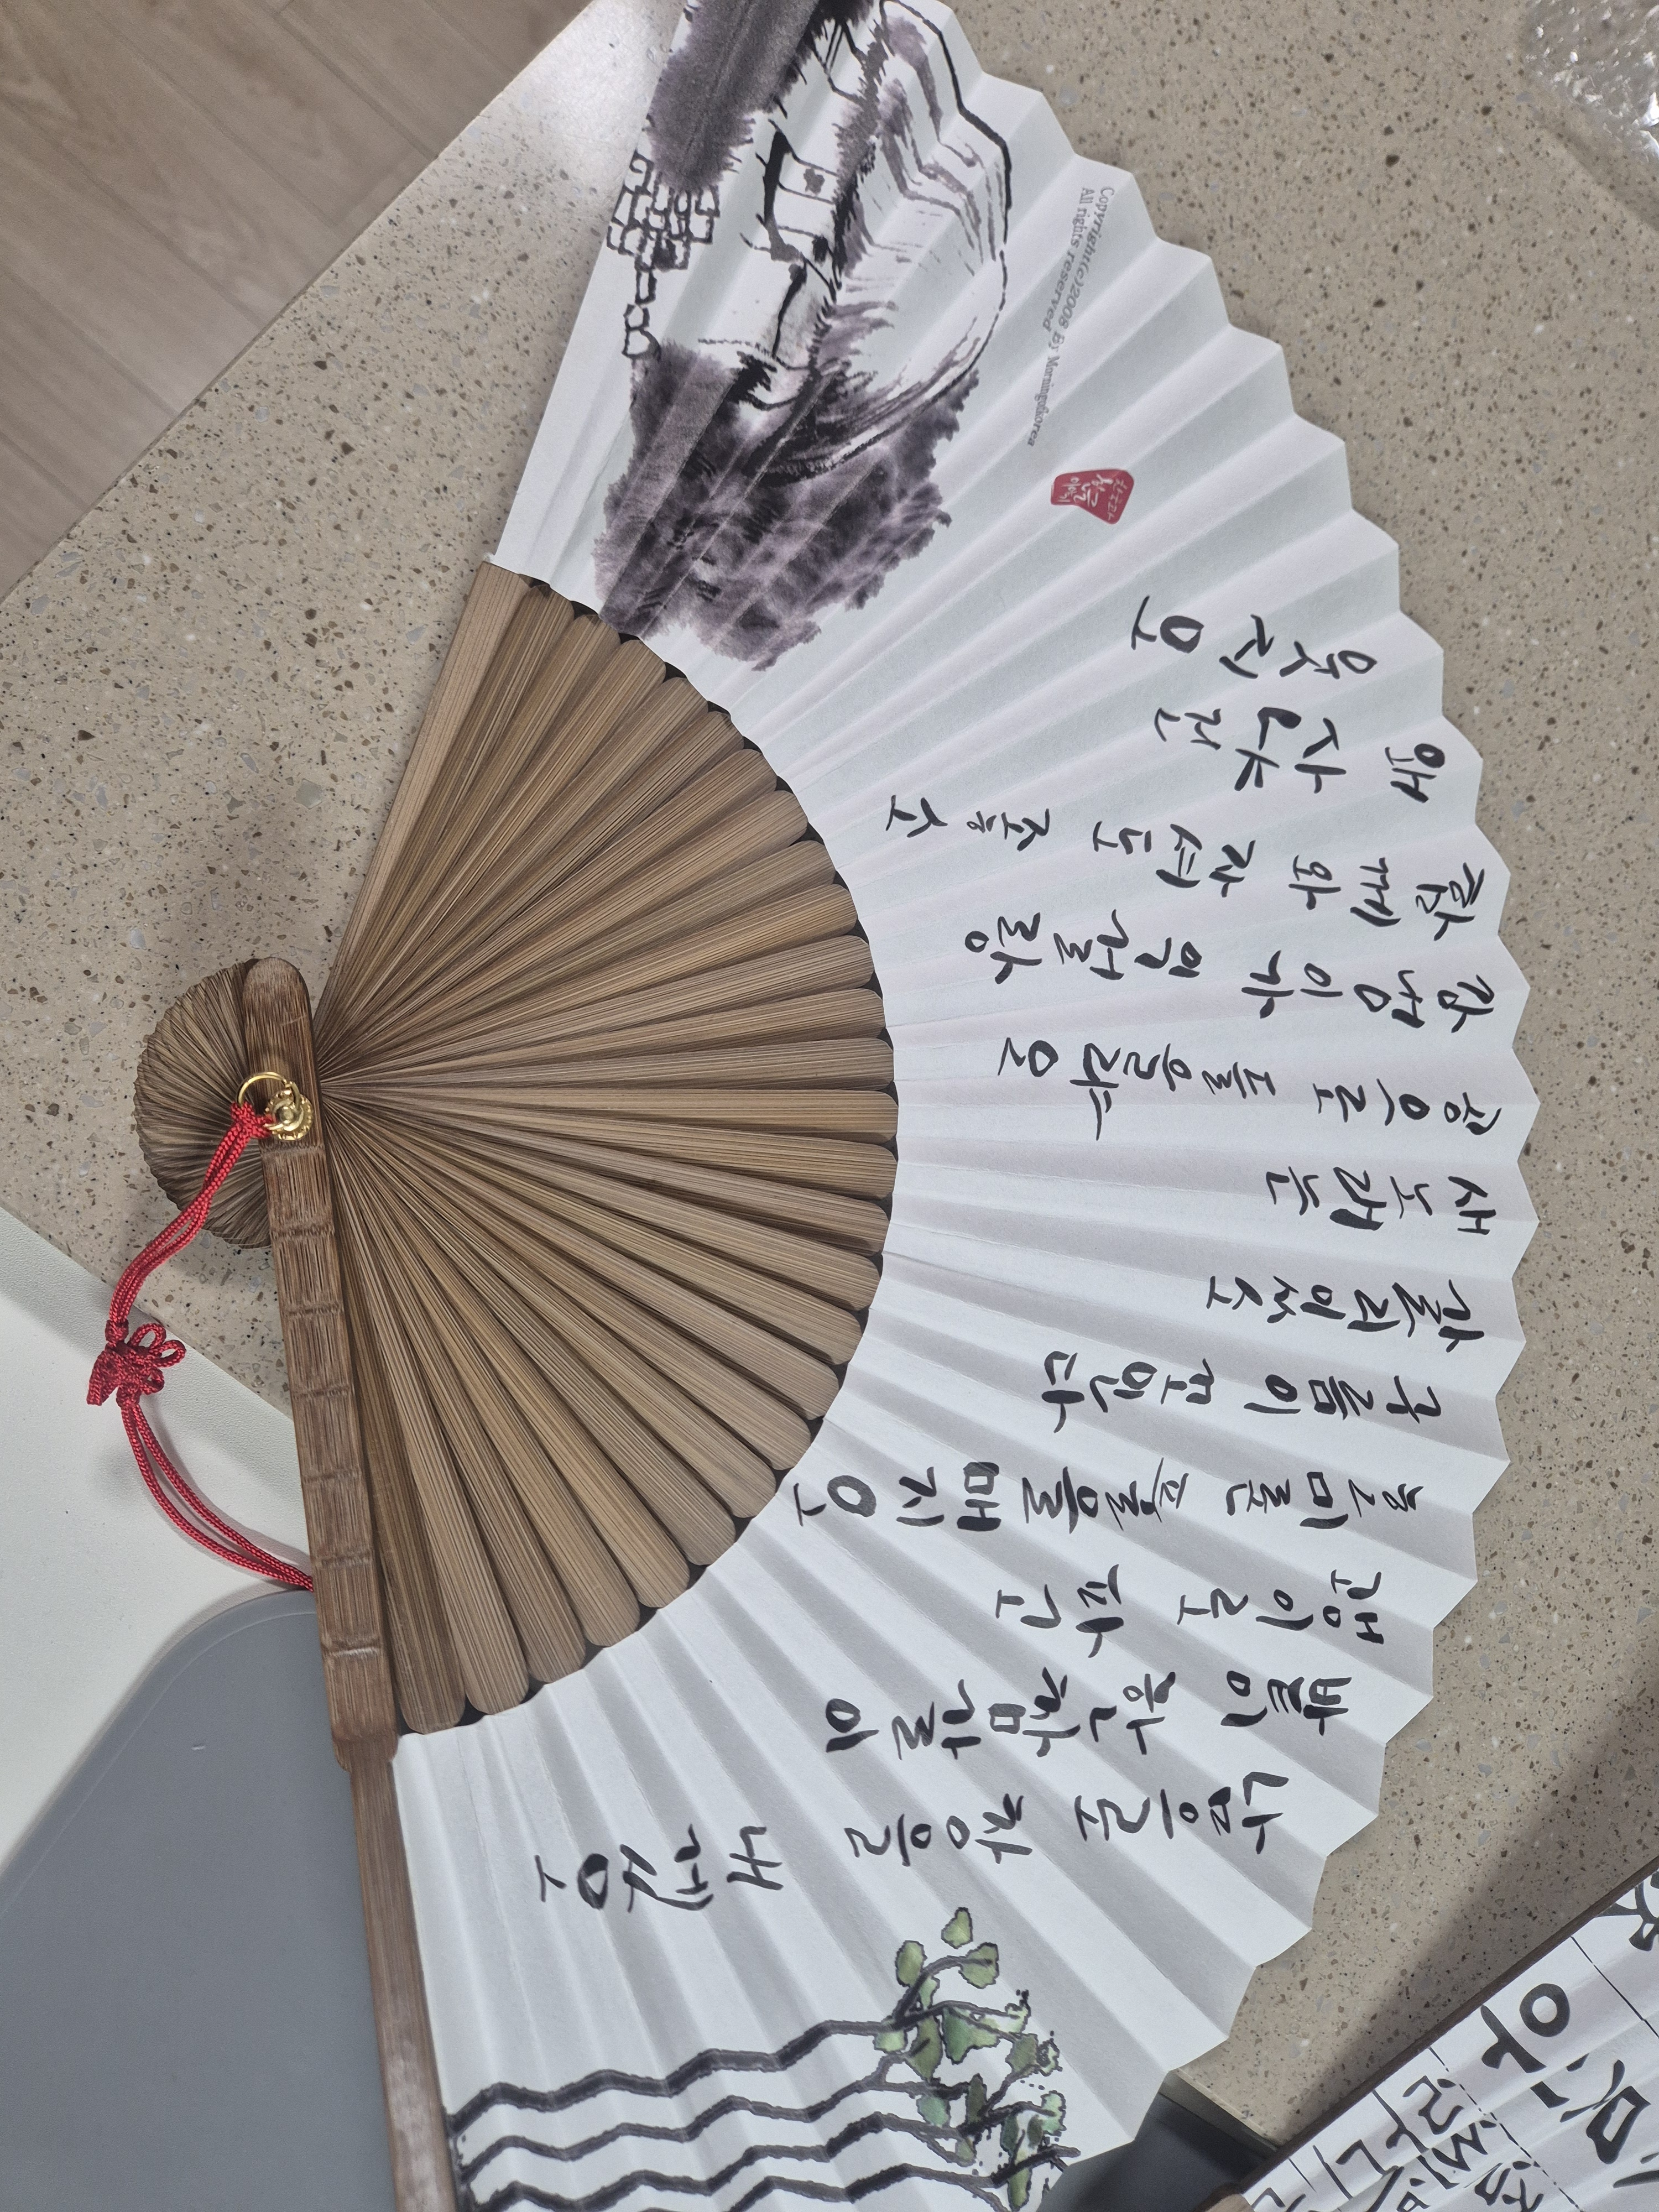 남으로 창을 내겠오
밭이 한참갈이
괭이로 파고
호미론 풀을 매지오
구름이 꼬인다
갈리있소
새노래는
공으로 들을라오
강냉이가 익걸랑
함께 와 자셔도 좋소
왜 사냐건
웃지오
Copyright(c)2008 By Morningkorea
All rights reserved